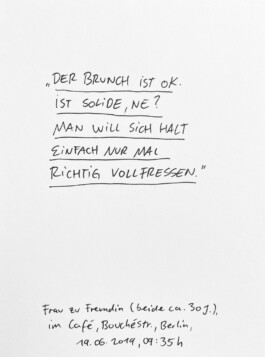 „DER BRUNCH IST OK.
IST SOLIDE, NE?
MAN WILL SICH HALT
EINFACH NUR MAL
RICHTIG VOLLFRESSEN."
Frau zu Freundin (beide ca. 30 J.),
im Café, Bouchéstr., Berlin,
19.06.2019, 09:35h